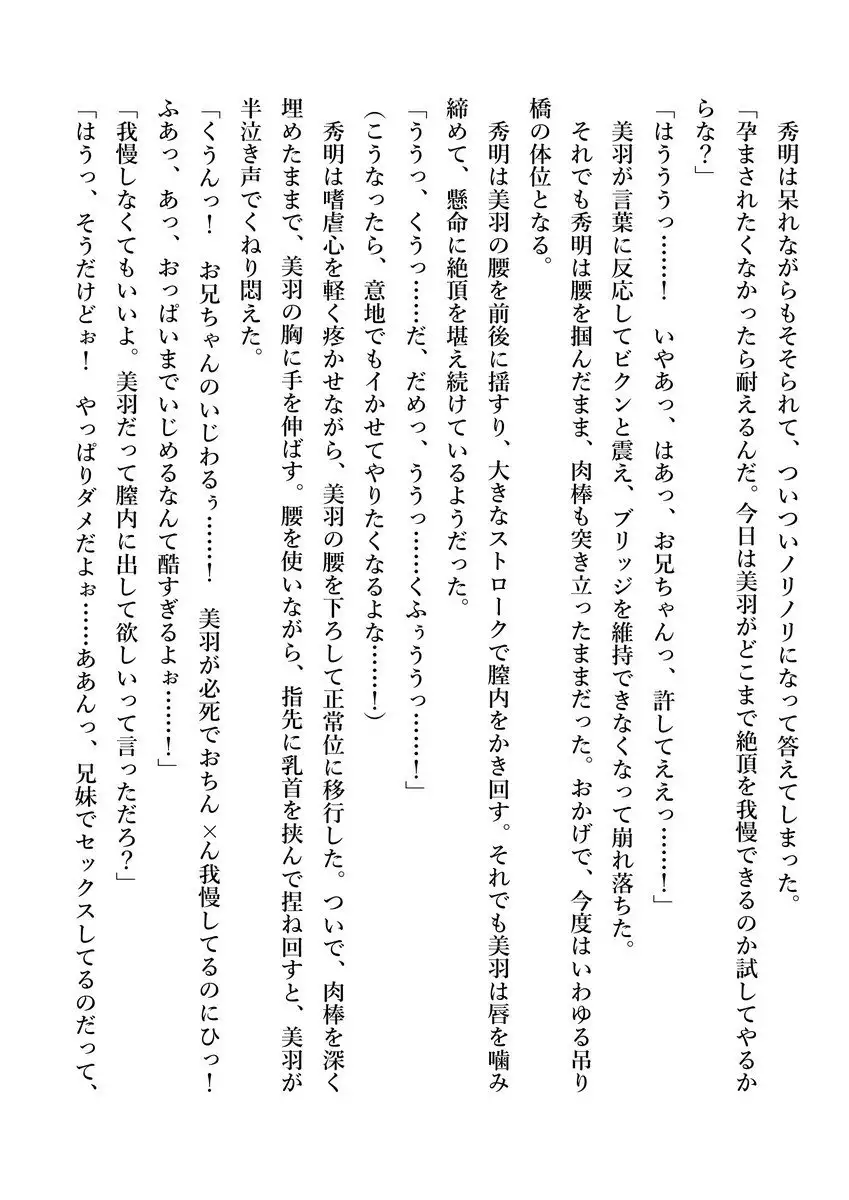 秀明は呆れながらもそそられて、ついついノリノリになって答えてしまった。
「孕まされたくなかったら耐えるんだ。今日は美羽がどこまで絶頂を我慢できるのか試してやるか
らな？」
「はうううっ……！　いやあっ、はあっ、お兄ちゃんっ、許してええっ……！」
美羽が言葉に反応してビクンと震え、ブリッジを維持できなくなって崩れ落ちた。
それでも秀明は腰を掴んだまま、肉棒も突き立ったままだった。おかげで、今度はいわゆる吊り
橋の体位となる。
秀明は美羽の腰を前後に揺すり、大きなストロークで膣内をかき回す。それでも美羽は唇を噛み
締めて、懸命に絶頂を堪え続けているようだった。
「ううっ、くうっ……だ、だめっ、ううっ……くふぅううっ……！」
(こうなったら、意地でもイかせてやりたくなるよな……！)
秀明は嗜虐心を軽く疼かせながら、美羽の腰を下ろして正常位に移行した。ついで、肉棒を深く
埋めたままで、美羽の胸に手を伸ばす。腰を使いながら、指先に乳首を挟んで捏ね回すと、美羽が
半泣き声でくねり悶えた。
「くうんっ！　お兄ちゃんのいじわるぅ……！　美羽が必死でおちん×ん我慢してるのにひっ！
ふあっ、あっ、おっぱいまでいじめるなんて酷すぎるよぉ……！」
「我慢しなくてもいいよ。美羽だって膣内に出して欲しいって言っただろ？」
「はうっ、そうだけどぉ！　やっぱりダメだよぉ……ああんっ、兄妹でセックスしてるのだって、